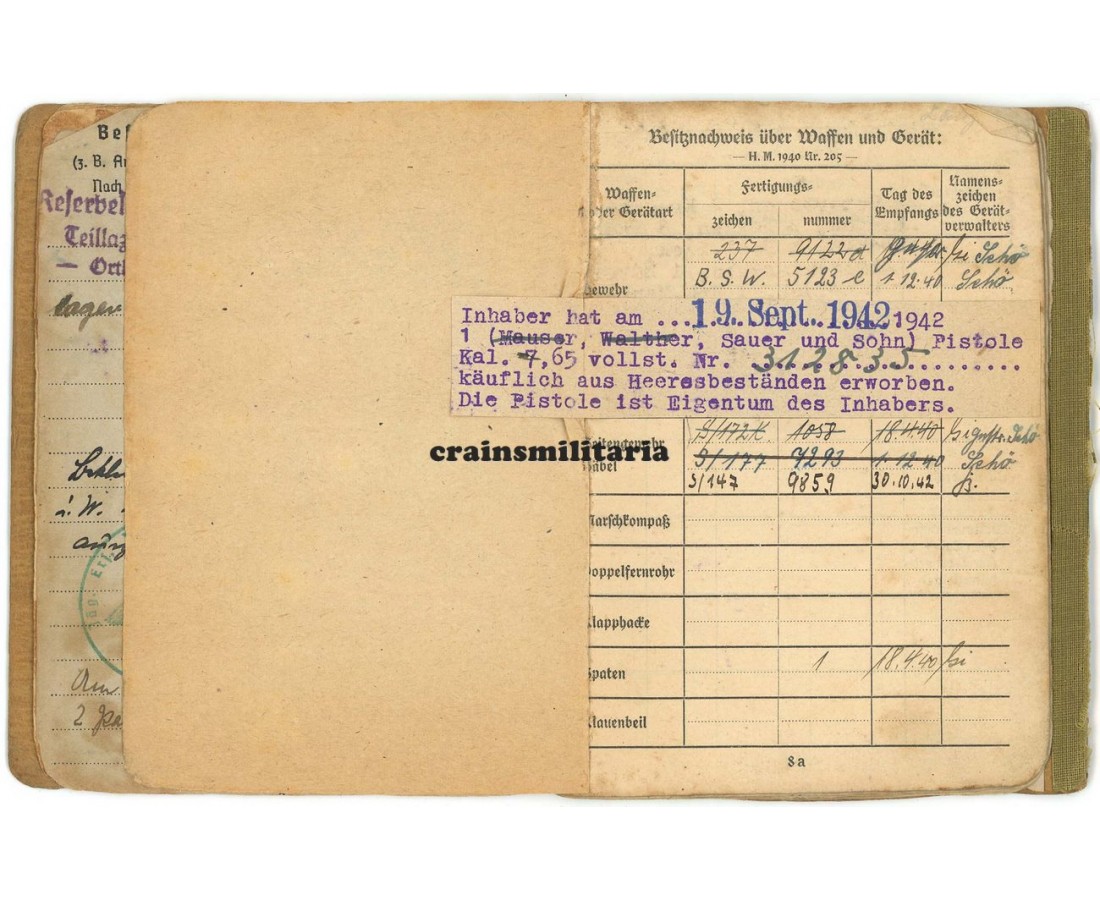 Bes
(z. B. An
Nach
Reservel
Teillaz
— Ort
lager
ausg
Am
2
Besitznachweis über Waffen und Gerät:
— H. M. 1940 Nr. 205 —
Waffen-
oder Gerätart
Fertigungs-
zeichen
nummer
Tag des
Empfangs
Namens-
zeichen
des Gerät-
verwalters
237 9122 d Schö
Gewehr B. S. W. 5123 e 1.12.40 Schö
Inhaber hat am ... 19. Sept. 1942 1942
1 (Mauser, Walther, Sauer und Sohn) Pistole
Kal. 7,65 vollst. Nr. 312835
käuflich aus Heeresbeständen erworben.
Die Pistole ist Eigentum des Inhabers.
Seitengewehr S/172 K. 1058 18.4.40 Schö
Säbel S/177 7293 1.12.40 Schö
S/147 9859 30.10.42
crainsmilitaria
Marschkompaß
Doppelfernrohr
Klapphacke
Spaten 1 18.4.40
Klauenbeil
8a